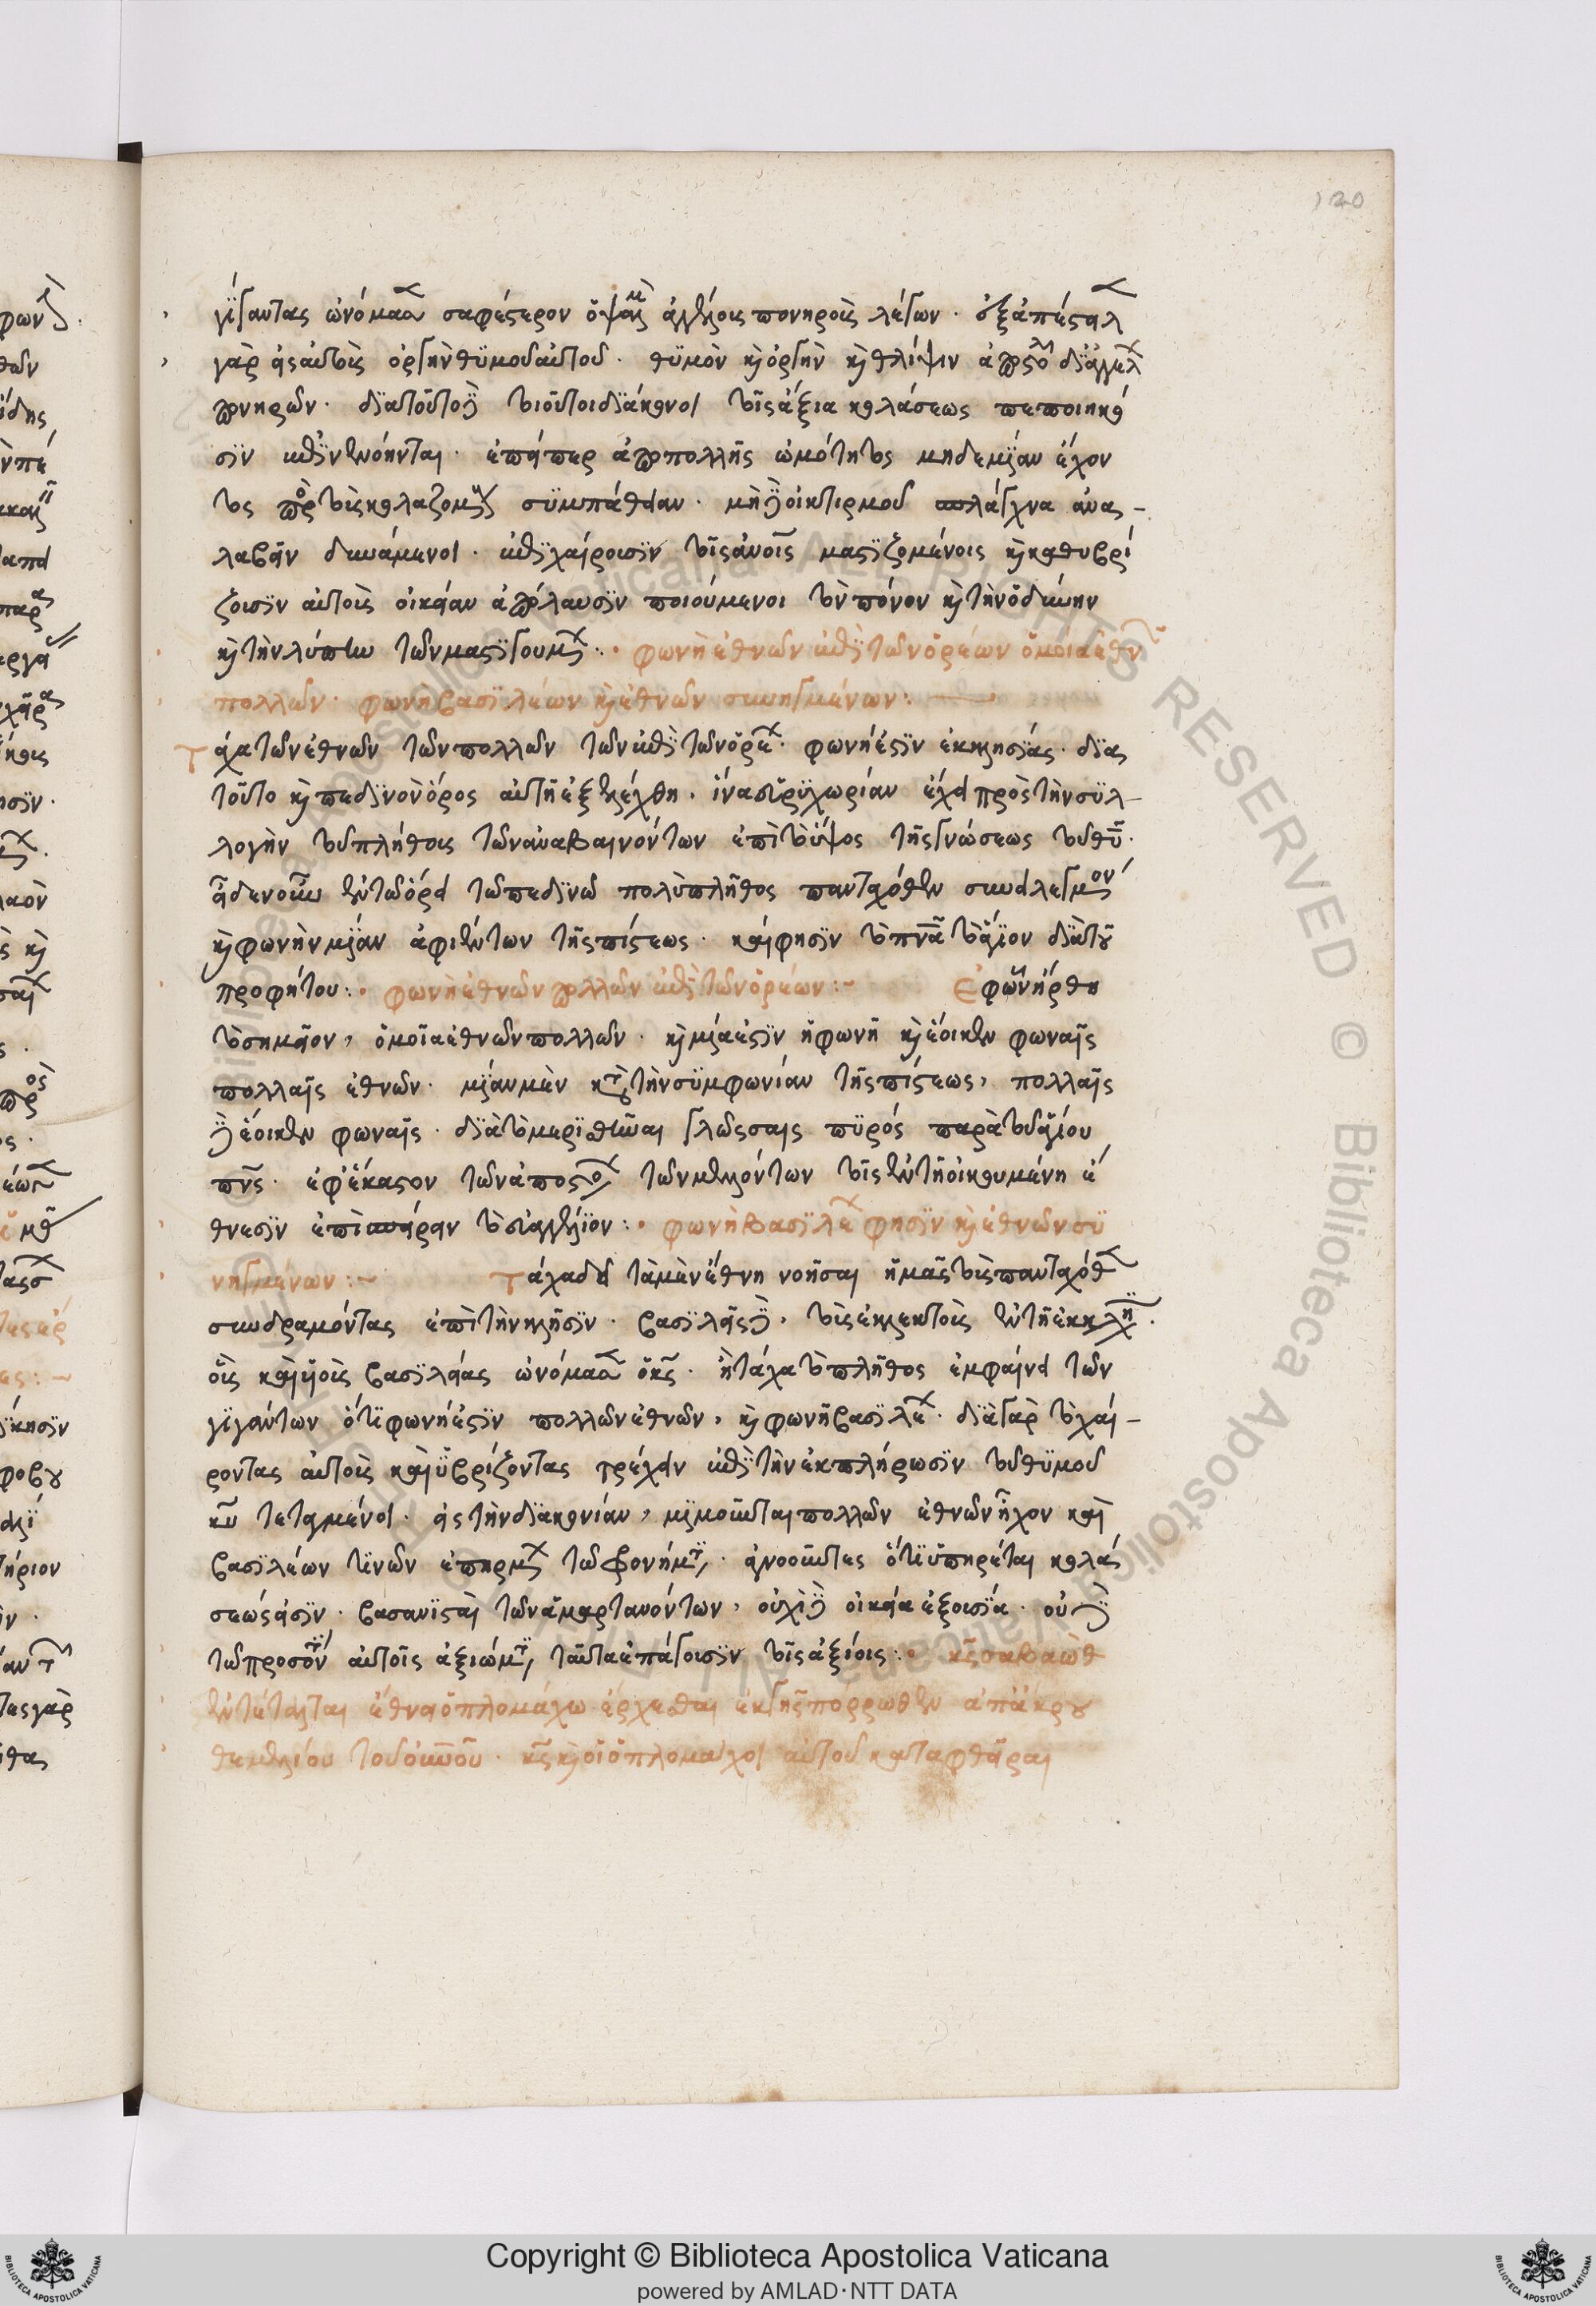 120
γίγαντας ὠνόμασε σαφέστερον ὁ ψαλμὸς ἀγγέλους πονηροὺς λέγων · ἐξαπέστειλε
γὰρ εἰς αὐτοὺς ὀργὴν θυμοῦ αὐτοῦ · θυμὸν καὶ ὀργὴν καὶ θλίψιν ἀποστολὴν δι ἀγγέλων
πονηρῶν · διατοῦτο δὲ τοιοῦτοι διάκονοι τοῖς ἄξια κολάσεως πεποιηκό
σιν ἐπιπέμπονται · ἐπείπερ ἀπὸ πολλῆς ὠμότητος μηδεμίαν ἔχον
τες πρὸς τοὺς κολαζομένους συμπάθειαν · μὴ δὲ οἰκτιρμοῦ σπλάγχνα ἀνα-
λαβεῖν δυνάμενοι · ἐπιχαίρουσιν τοῖς ἀνοις μαστιζομένοις καὶ καθυβρί
ζουσιν αὐτοὺς οἰκείαν ἀπόλαυσιν ποιούμενοι τὸν πόνον καὶ τὴν ὀδύνην
καὶ τὴν λύπην τῶν μαστιγουμένων · φωνὴ ἐθνῶν ἐπὶ τῶν ὀρέων ὁμοία ἐθνῶν
πολλῶν · φωνὴ βασιλέων καὶ ἐθνῶν συνηγμένων :
τάχα τῶν ἐθνῶν τῶν πολλῶν τῶν ἐπὶ τῶν ὀρέων · φωνή ἐστιν ἐκκλησίας · δια
τοῦτο καὶ πεδινὸν ὄρος αὐτῇ ἐξελέχθη · ἵνα εὐρυχωρίαν ἔχει πρὸς τὴν συλ-
λογὴν τοῦ πλήθους τῶν ἀναβαινόντων ἐπὶ τὸ ὕψος τῆς γνώσεως τοῦ θυ ·
εἶδεν οὖν ἐν τῷ ὄρει τῷ πεδινῷ πολὺ πλῆθος πανταχόθεν συνειλεγμένον
καὶ φωνὴν μίαν ἀφιέντων τῆς πίστεως · καί φησιν τὸ πνα τὸ ἅγιον διὰ τοῦ
προφήτου : φωνὴ ἐθνῶν πολλῶν ἐπὶ τῶν ὀρέων : Ἐφ ὧν ἤρθη
τὸ σημεῖον, ὁμοία ἐθνῶν πολλῶν · καὶ μία ἐστὶν ἡ φωνὴ καὶ ἔοικεν φωναῖς
πολλαῖς ἐθνῶν · μίαν μὲν κατὰ τὴν συμφωνίαν τῆς πίστεως, πολλαῖς
δὲ ἔοικεν φωναῖς · διὰ τὸ μερισθῆναι γλώσσαις πυρός παρὰ τοῦ ἁγίου
πνς · ἐφ ἕκαστον τῶν ἀποστόλων τῶν μελλόντων τοῖς ἐν τῇ οἰκουμένῃ ἔ
θνεσιν ἐπισπείρειν τὸ εὐαγγέλιον : φωνὴ βασιλέων φησὶν καὶ ἐθνῶν συ
νηγμένων : Τάχα δεῖ τὰ μὲν ἔθνη νοῆσαι ἡμᾶς τοὺς πανταχόθεν
συνδραμόντας ἐπὶ τὴν κλῆσιν · βασιλεῖς δὲ, τοὺς ἐκλεκτοὺς ἐν τῇ ἐκκλησίᾳ ·
οὓς καὶ υἱοὺς βασιλείας ὠνόμασεν ὁ κς · ἢ τάχα τὸ πλῆθος ἐμφαίνει τῶν
γιγάντων ὅτι φωνή ἐστιν πολλῶν ἐθνῶν, καὶ φωνὴ βασιλέων · διὰ γὰρ τὸ χαί-
ροντας αὐτοὺς καὶ ὑβρίζοντας τρέχειν ἐπὶ τὴν ἐκπλήρωσιν τοῦ θυμοῦ
κυ τεταγμένοι · εἰς τὴν διακονίαν, μιμοῦνται πολλῶν ἐθνῶν ἦχον καὶ
βασιλέων τινῶν ἐπηρμένων τῷ φρονήματι · ἀγνοοῦντες ὅτι ὑπηρέται κολά
σεώς εἰσιν · βασανισταὶ τῶν ἁμαρτανόντων, οὐχὶ δὲ οἰκεία ἐξουσία · οὐ δὲ
τῷ προσόντι αὐτοῖς ἀξιώματι ταῦτα ἐπάγουσιν τοῖς ἀξίοις : κς σαβαὼθ
ἐντέταλται ἔθνει ὁπλομάχῳ ἔρχεσθαι ἐκ γῆς πόρρωθεν ἀπ ἄκρου
θεμελίου τοῦ οὐνοῦ · κς καὶ οἱ ὁπλομάχοι αὐτοῦ καταφθεῖραι
Copyright © Biblioteca Apostolica Vaticana
powered by AMLAD·NTT DATA